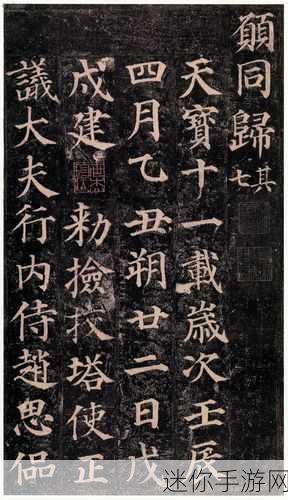 願同歸其七
天寶十一載歲次壬辰
四月乙丑朔廿二日戊
戌建 勅撿挍塔使正
議大夫行内侍趙思侃
迷你手游网